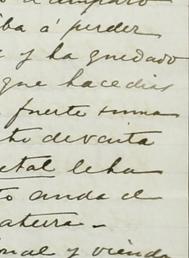 amparo
iba á perder
y ha quedado
que hace dias
fuerte suma
de venta
etal le ha
to anda el
atierra -
nal y viendo